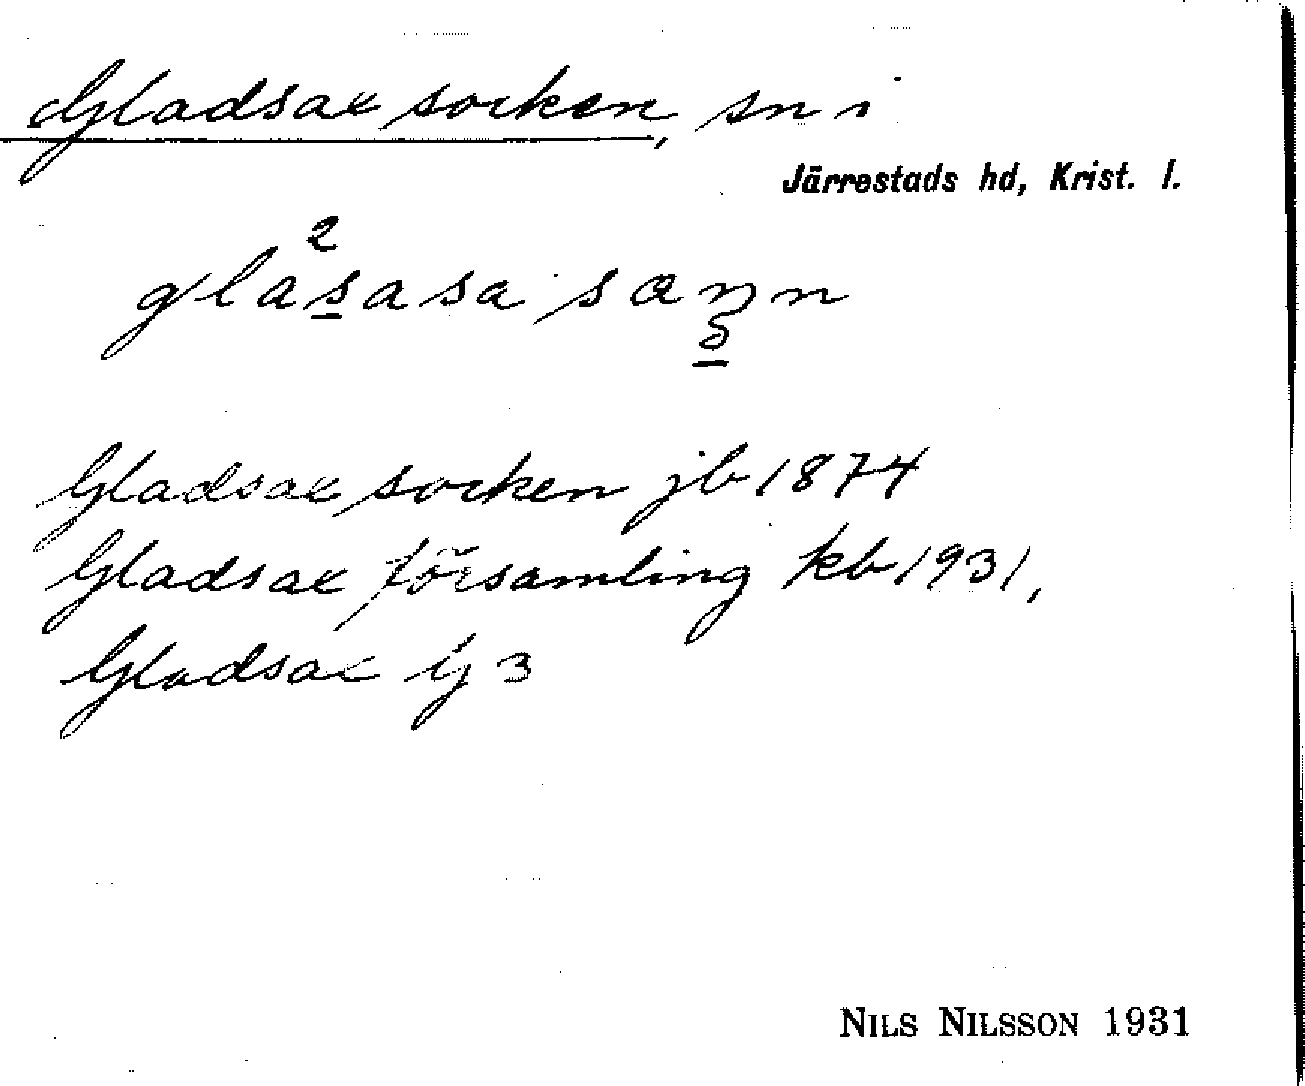 Gladsax socken, sn i
Järrestads hd, Krist. l.
Gladsax socken jb 1874
Gladsax församling kb 1931,
Gladsax
NILS NILSSON 1931